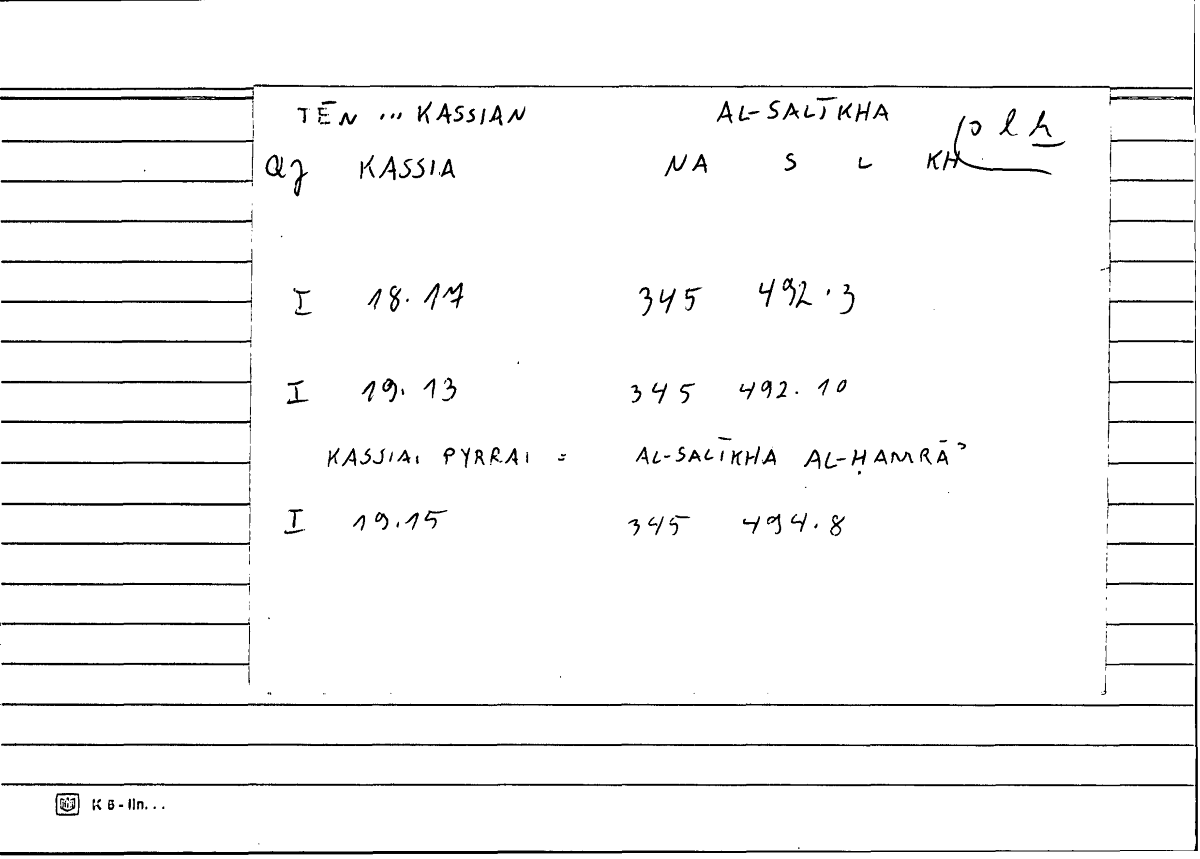 TĒN ... KASSIAN AL-SALĪKHA
QJ KASSIA NA S L KH
I 18.17 345 492.3
I 19.13 345 492.10
KASSIAI PYRRAI = AL-SALĪKHA AL-ḤAMRĀʾ
I 19.15 345 494.8
K 6 - lin...